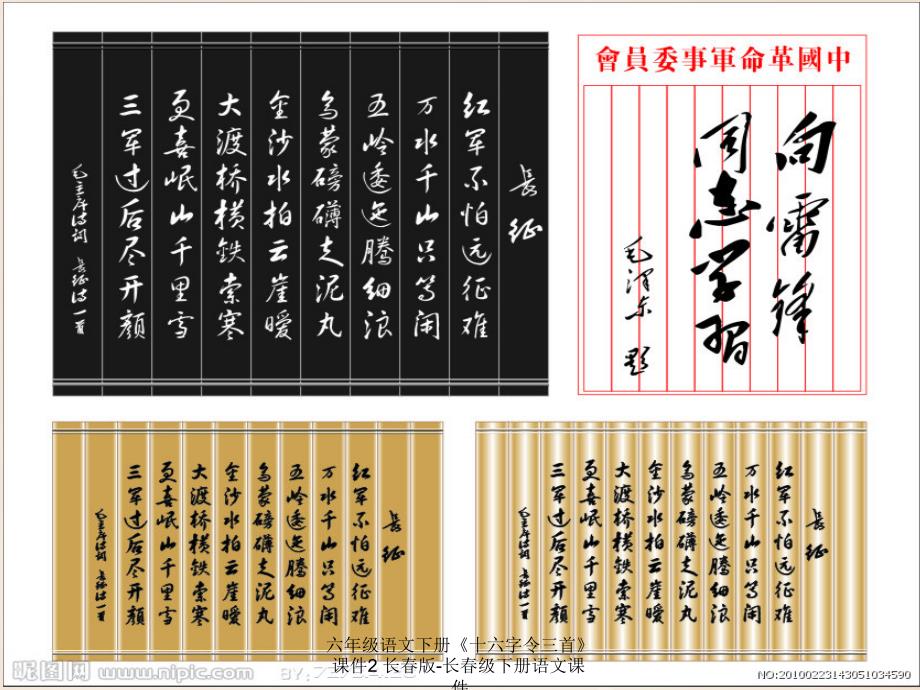 長征
红军不怕远征难
万水千山只等闲
五岭逶迤腾细浪
乌蒙磅礴走泥丸
金沙水拍云崖暖
大渡桥横铁索寒
更喜岷山千里雪
三军过后尽开颜
毛主席诗词 長征诗一首
中國革命軍事委員會
向雷鋒
同志学習
毛泽东 题
長征
红军不怕远征难
万水千山只等闲
五岭逶迤腾细浪
乌蒙磅礴走泥丸
金沙水拍云崖暖
大渡桥横铁索寒
更喜岷山千里雪
三军过后尽开颜
毛主席诗词 長征诗一首
長征
红军不怕远征难
万水千山只等闲
五岭逶迤腾细浪
乌蒙磅礴走泥丸
金沙水拍云崖暖
大渡桥横铁索寒
更喜岷山千里雪
三军过后尽开颜
毛主席诗词 長征诗一首
六年级语文下册《十六字令三首》
课件2 长春版-长春级下册语文课
件
昵图网 www.nipic.com BY:
NO:20100223143051034590